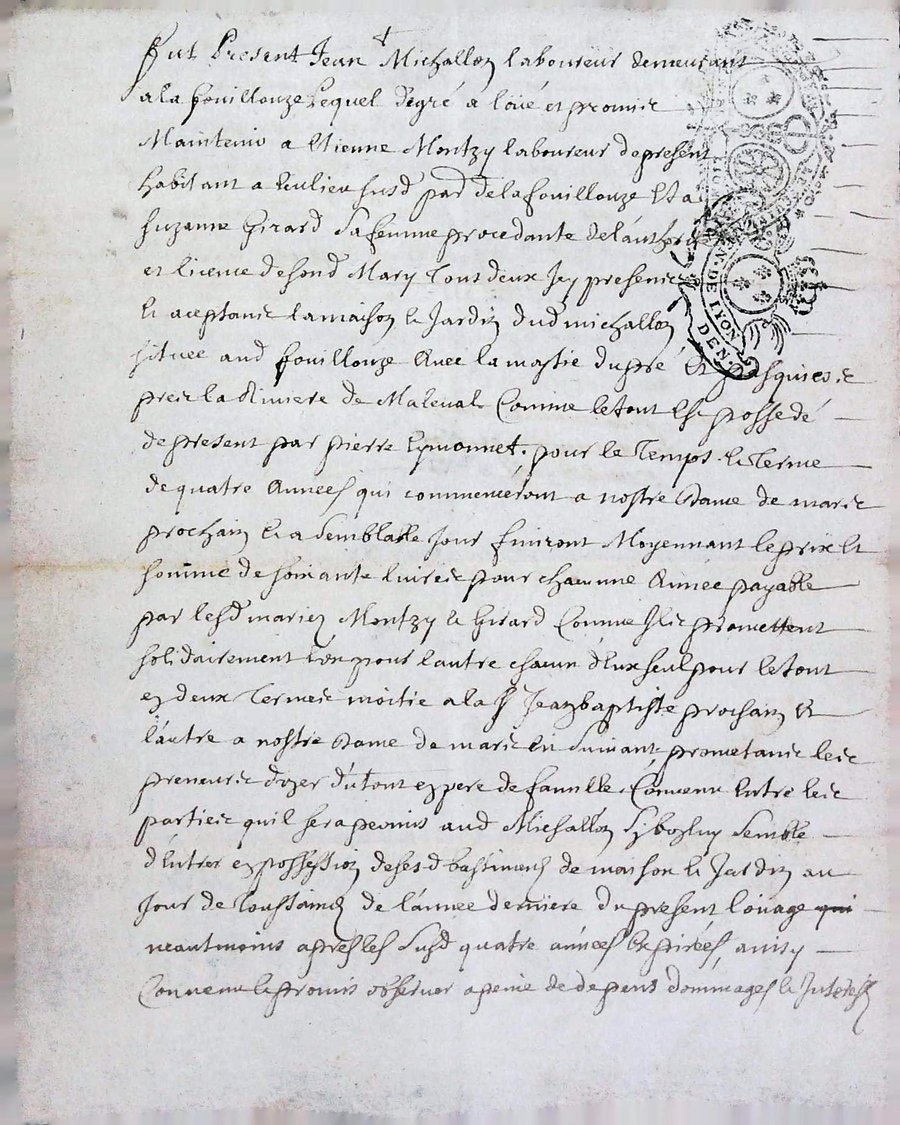 Fut Present Jean Michallon laboureur demeurant
a la fouillouze Lequel degré a loüé et promis
Maintenir a Etienne Montzy laboureur de present
habitant a lieu susd par de la fouillouze Et a
suzanne Girard sa femme procedante de lauthorite
et licence desond Mary Tous deux Icy presents
Et aceptants la maison Et Jardin dud michallon
scituee aud fouillouze Avec la moytie du pré Et pasquiers
pres la Riviere de Maleval Comme le tout Est possedé
de present par pierre Eymonnet. pour le Temps Et Terme
de quatre Années qui commenceront a nostre Dame de mars
prochain Et a Semblable Jour finiront Moyennant le prix Et
somme de soixante livres pour chacunne Année payable
par lesd mariez Montzy Et Girard Comme Ils promettent
solidairement Lun pour lautre chacun dEux seul pour le tout
en deux Termes moitie a la St Jean baptiste prochain Et
lautre a nostre Dame de mars En Suivant, prometants les
preneurs duzer du tout en pere de famille. Convenu Entre les
parties quil sera permis aud Michallon sy bon luy semble
dEntrer en possession desesd bastiments de maison Et Jardin au
Jour de Toussaincts de lannee derniere du present loüage qui
neantmoins apres les susd quatre années Expirées, ainsy
Convenu Et promis observer a peine de depens dommages Et Interests
DE LYON
DEN.